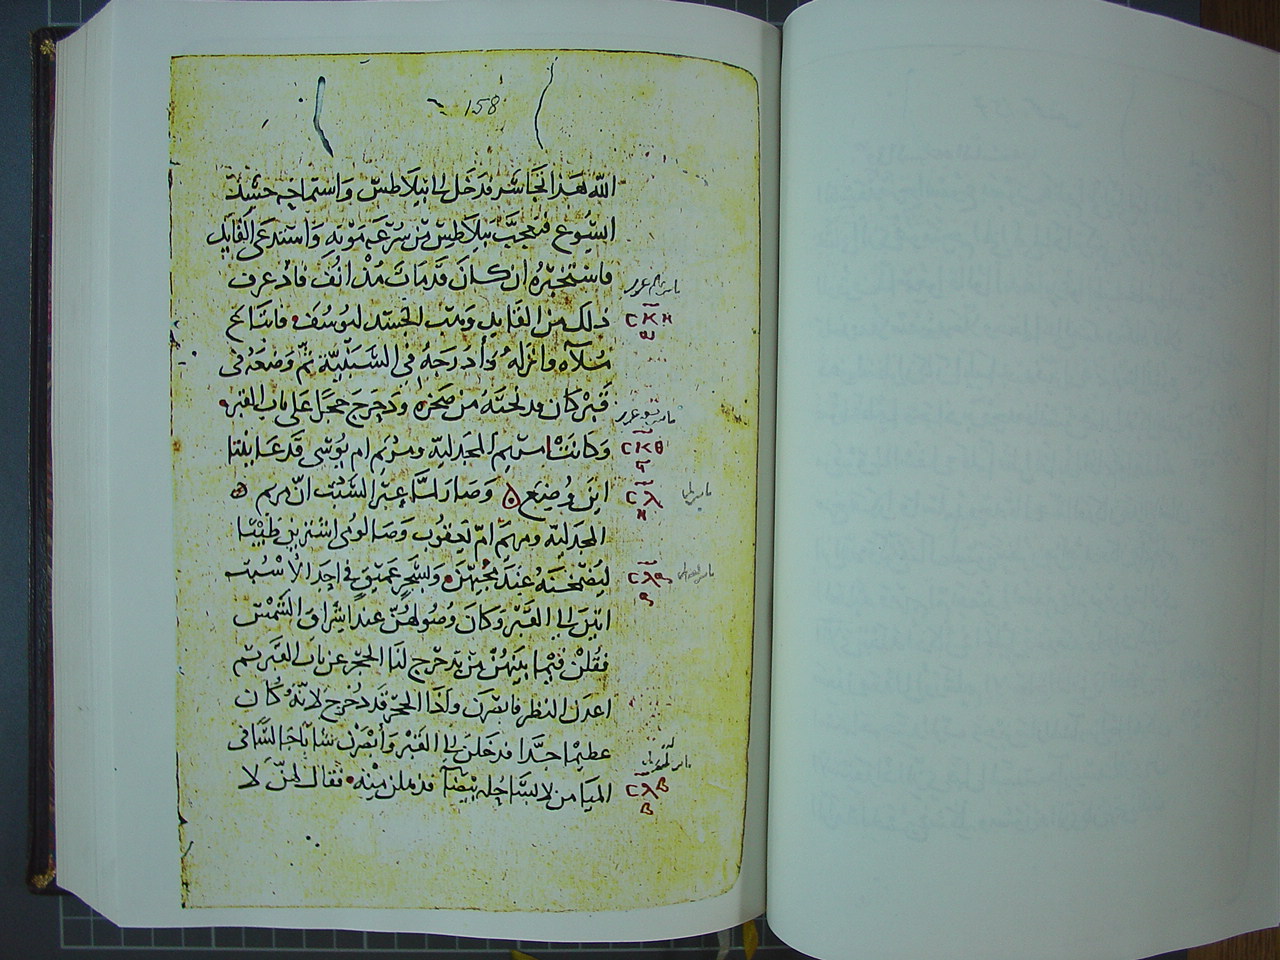 158
الله هذا تجاسر فدخل الى بيلاطس واستماحه جسد
ايسوع فتعجب بيلاطس من سرعة موته واستدعى القايد
فاستخبره ان كان قد مات مذ انف فاذ عرف
ذلك من القايد وهب الجسد ليوسف فابتاع
ملآه وانزله وأدرجه في السبنية ثم وضعه في
قبر كان قد نحته من صخره ودحرج حجرا على باب القبر
وكانت مريم المجدلية ومريم ام يوسى قد عاينتا
اين وضع وصار لما عبر السبت ان مريم
المجدلية ومريم ام يعقوب وصالومى اشترين طيبا
ليضمخنه عند مجيهن وبسحر عميق في احد الاسبت
اتين الى القبر وكان وصولهن عند اشراق الشمس
فقلن فيما بينهن من يدحرج لنا الحجر عن باب القبر ثم
اعدن النظر فابصرن ولذا الحجر قد دحرج لانه كان
عظيما جدا فدخلن الى القبر وأبصرن شابا جالسا في
الميامن لابسا حله بيضآ فذهلن منه فقال لهن لا
ⲤⲔⲎ
ⲤⲔⲐ
ⲤⲖ
ⲤⲖⲂ
Ⲃ